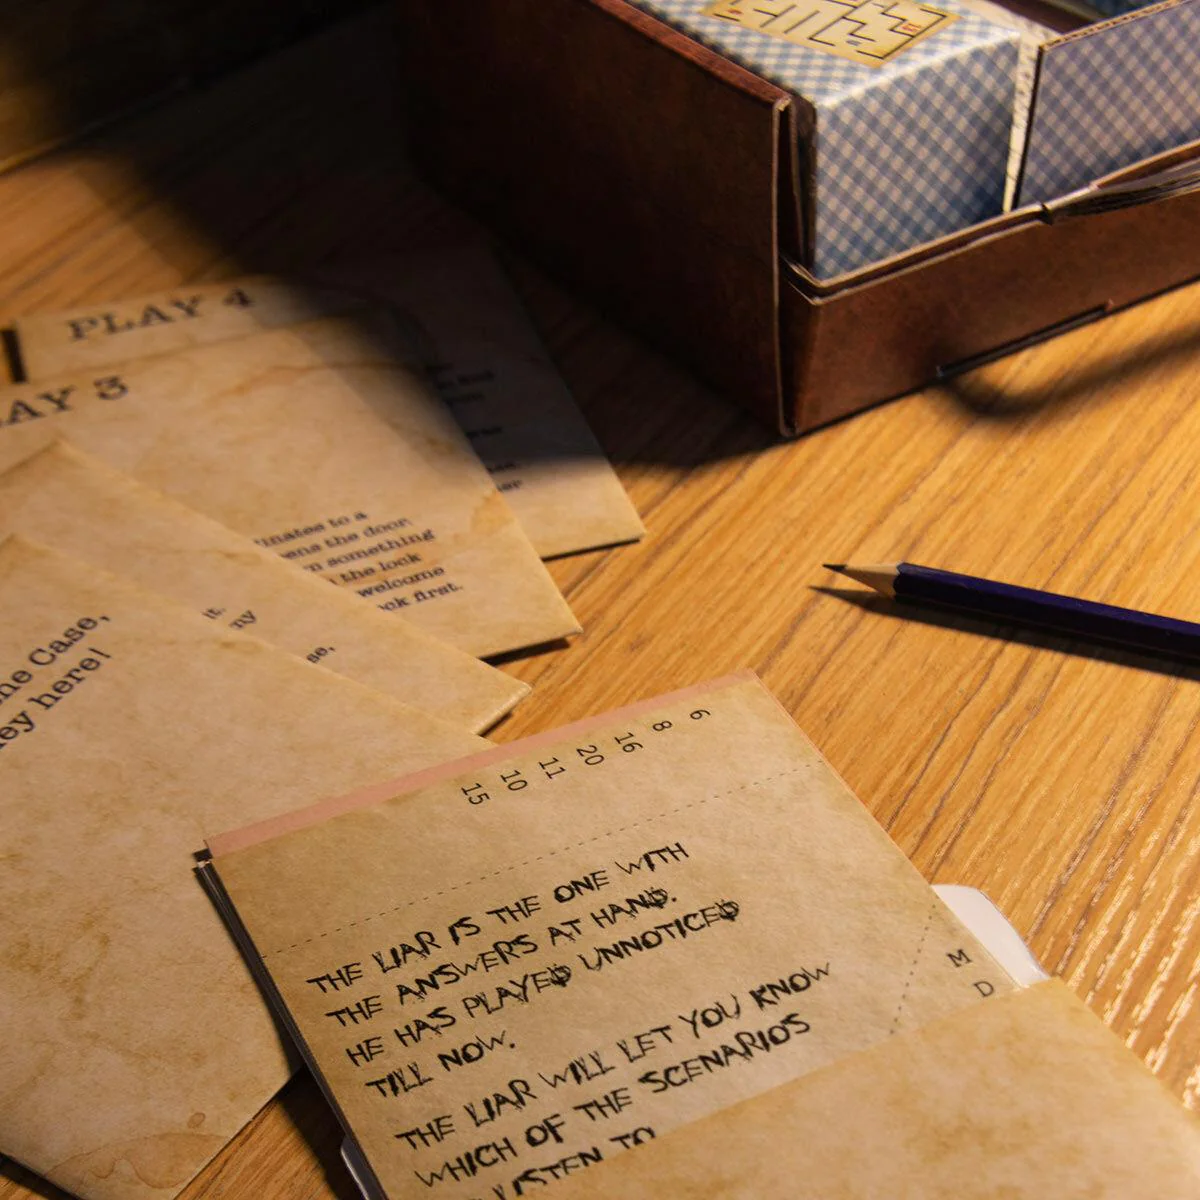 PLAY 4
AY 3
to a
the door
something
the lock
welcome
first.
ny
Case,
here!
6
8
16
20
11
10
15
THE LIAR IS THE ONE WITH
THE ANSWERS AT HAND.
HE HAS PLAYED UNNOTICED
TILL NOW.
THE LIAR WILL LET YOU KNOW
WHICH OF THE SCENARIOS
LISTEN TO
M
D